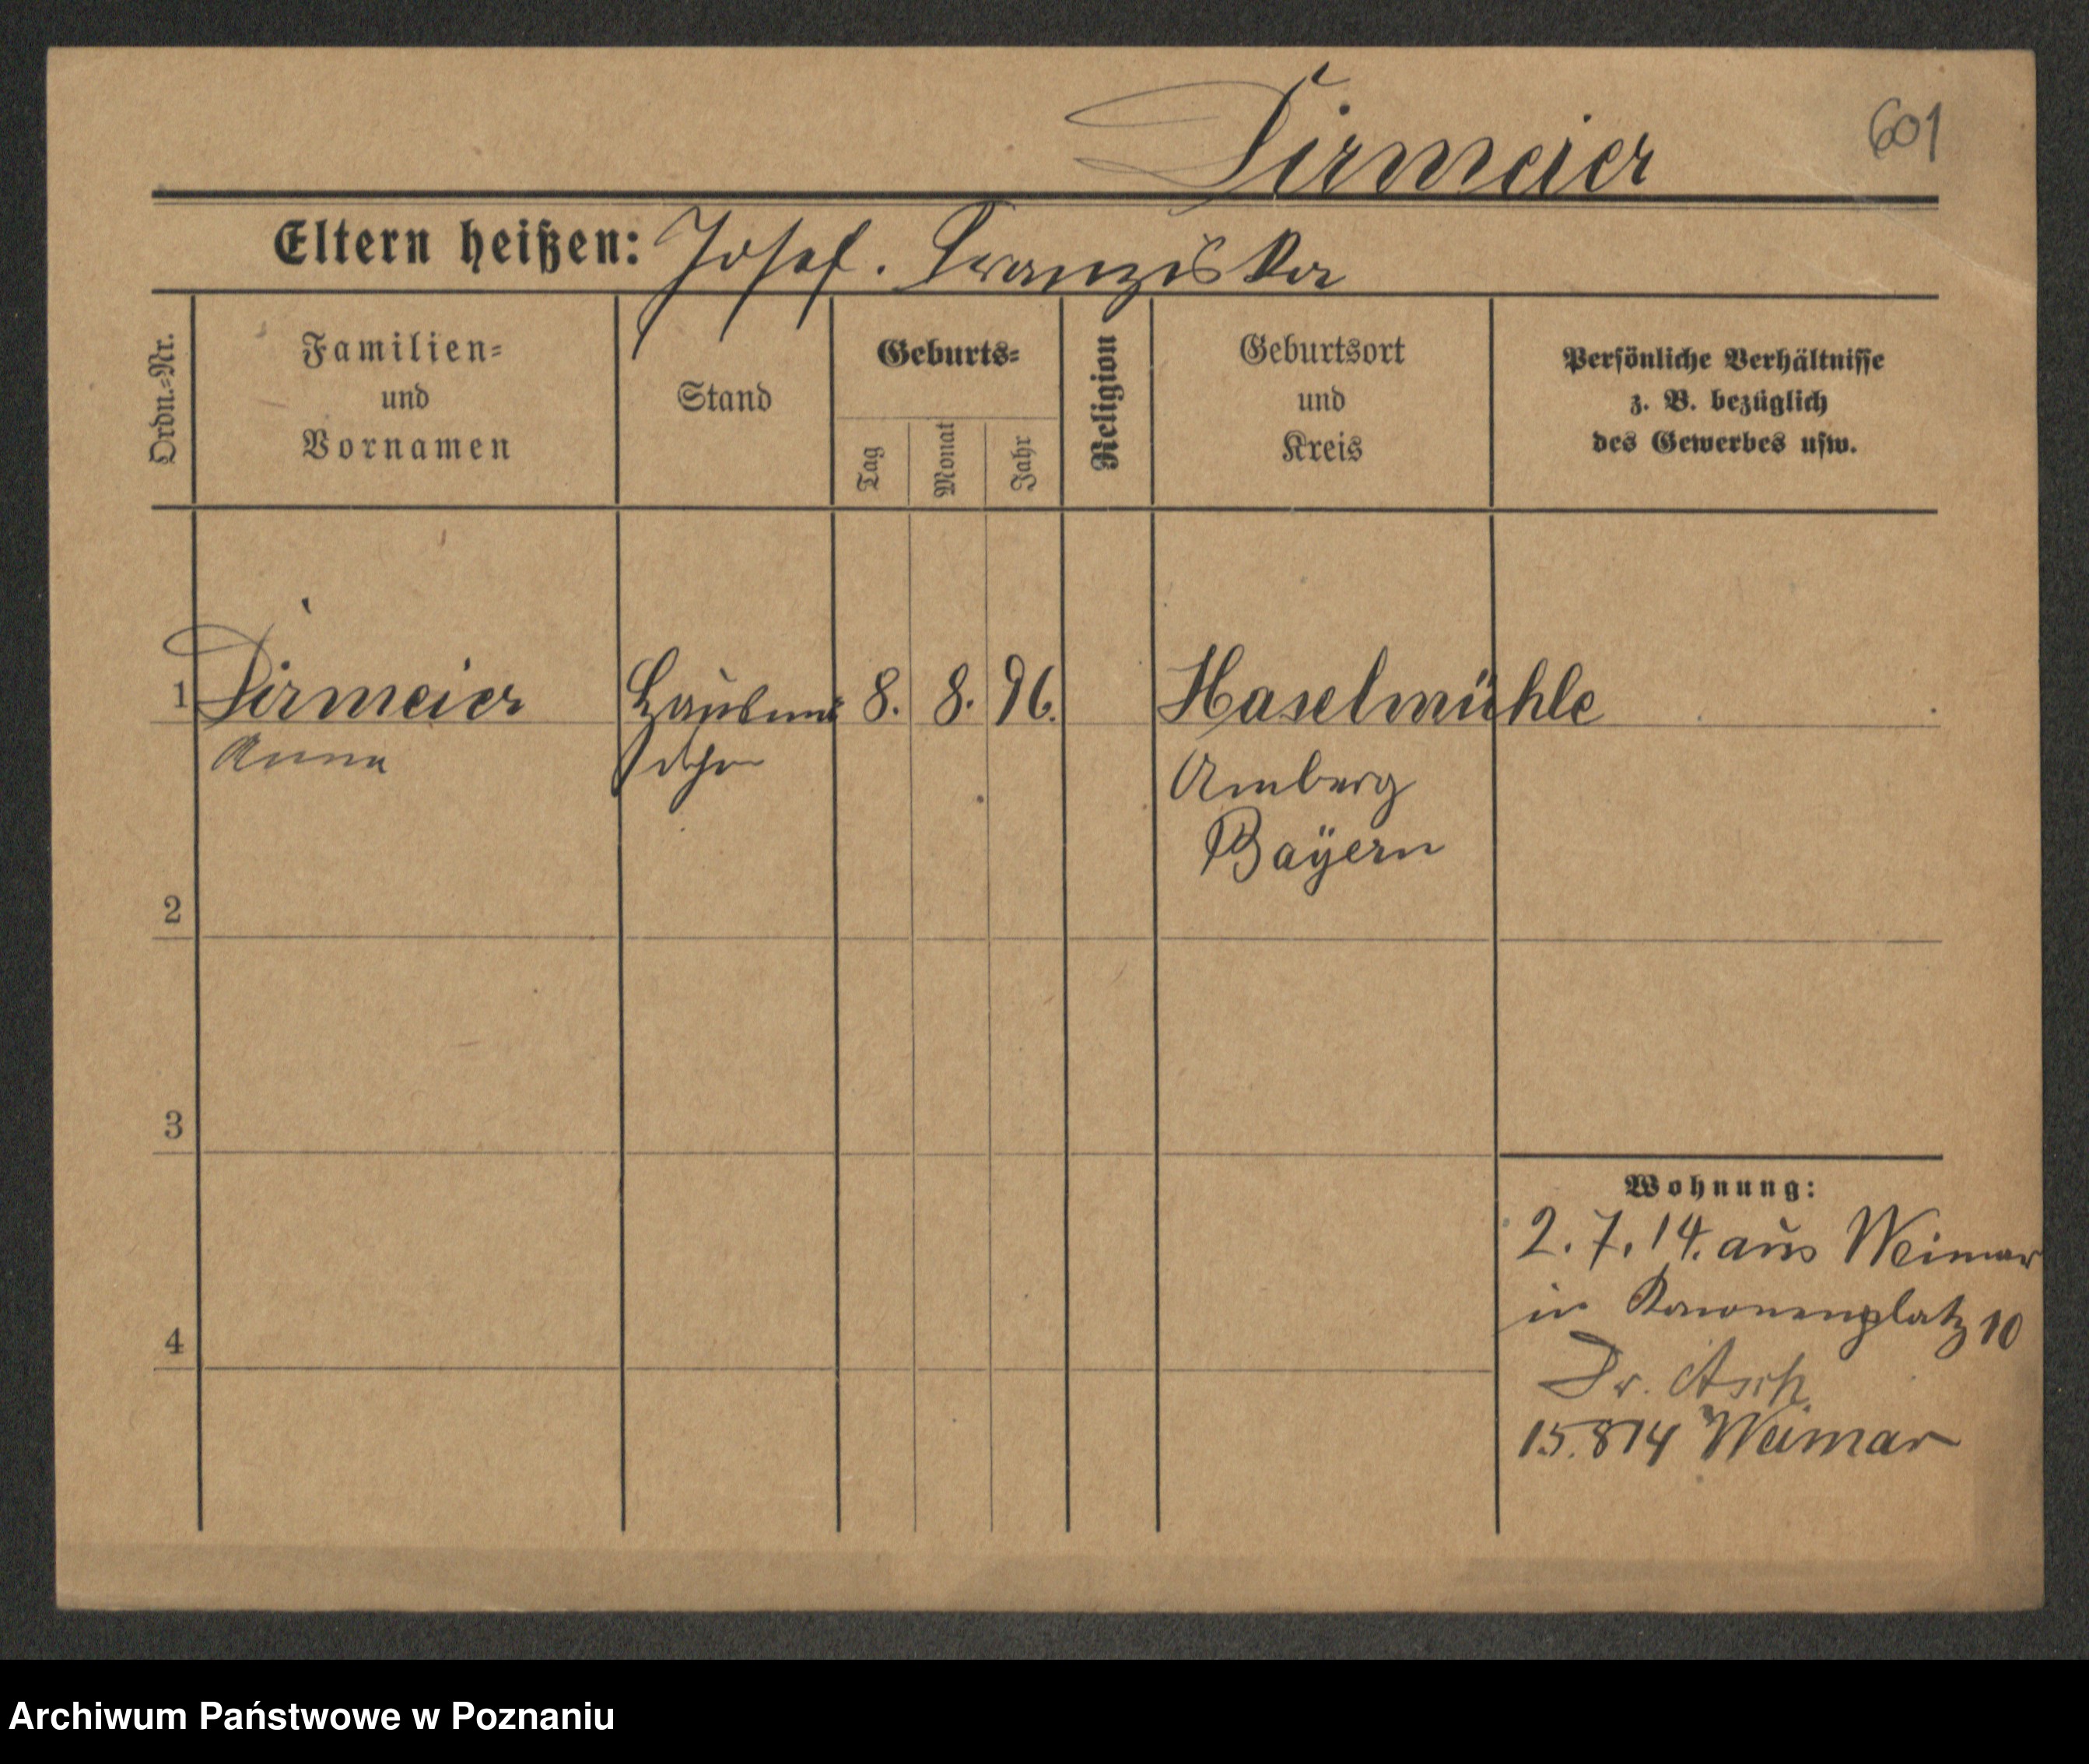 Dirmeier
601
Eltern heißen: Josef. Franziska
Ordn.-Nr.
Familien-
und
Vornamen
Stand
Geburts-
Tag
Monat
Jahr
Religion
Geburtsort
und
Kreis
Persönliche Verhältnisse
z. B. bezüglich
des Gewerbes usw.
1 Dirmeier 8. 8. 96. Haselmühle
Anna Amberg
Bayern
2
3
4
Wohnung:
2. 7. 14. aus Weimar
in Kanonenplatz 10
Dr. Asch
15.814 Weimar
Archiwum Państwowe w Poznaniu